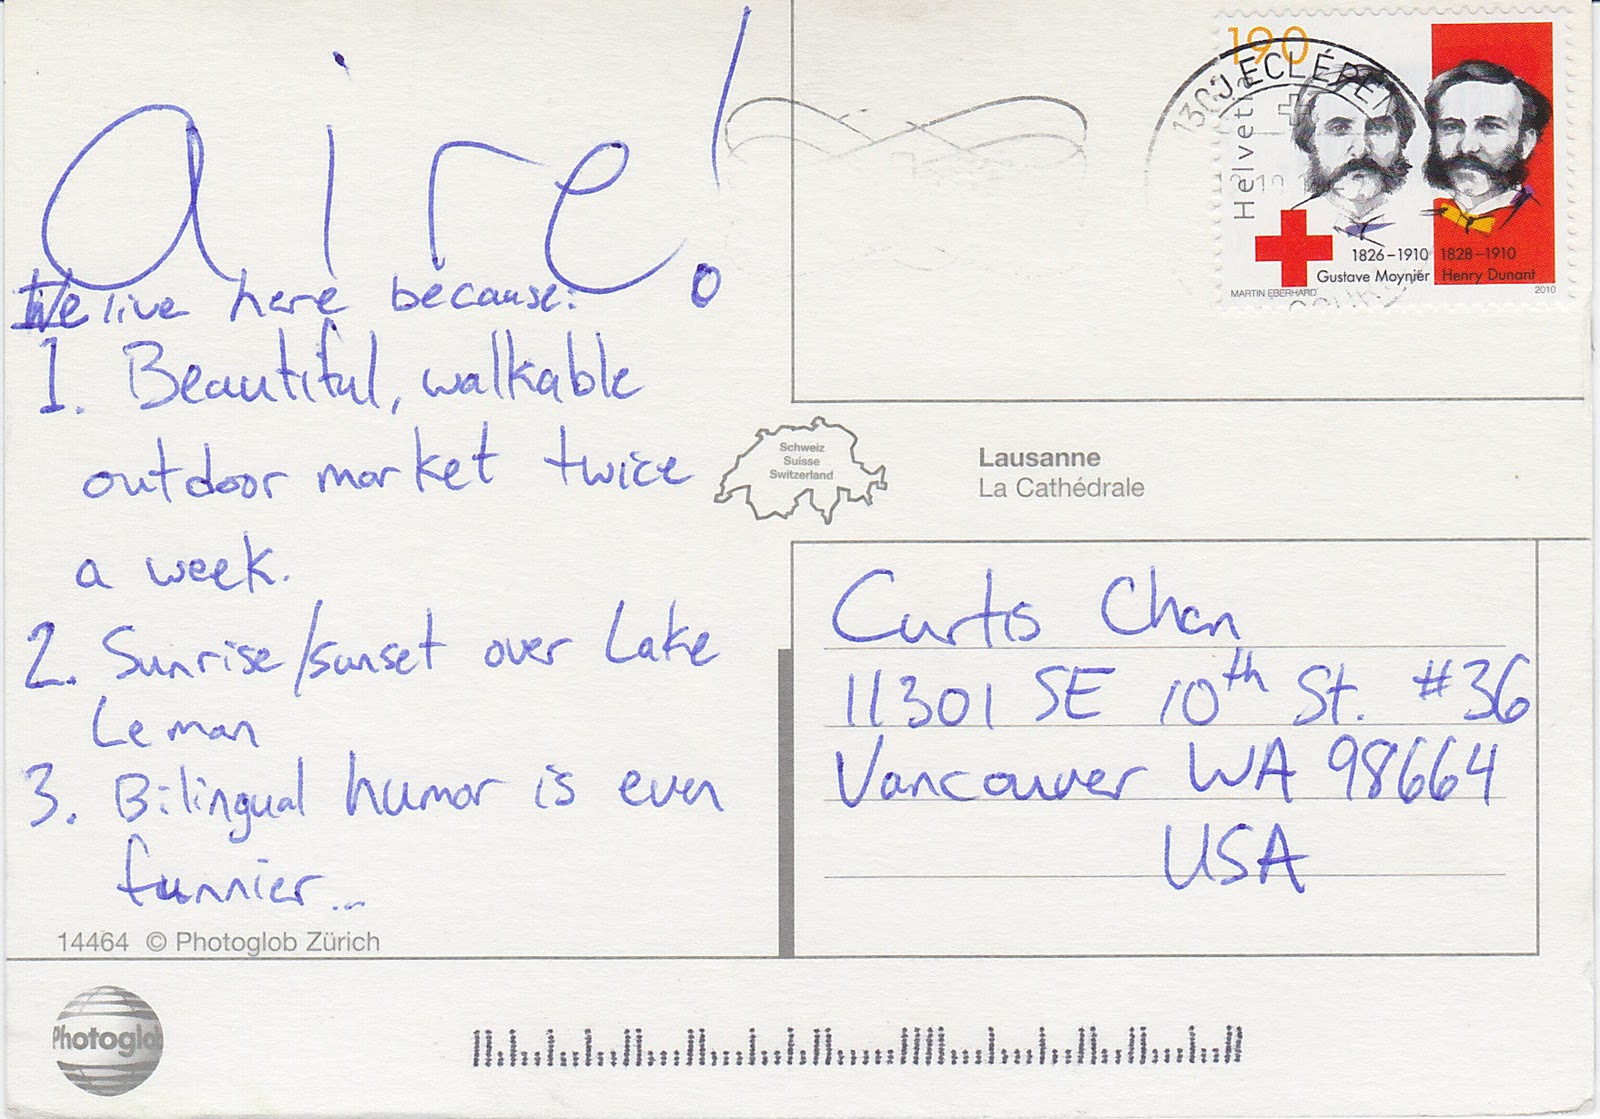 aire!
We live here because:
1. Beautiful, walkable
outdoor market twice
a week.
2. Sunrise/sunset over Lake
Leman
3. Bilingual humor is even
funnier...
14464 © Photoglob Zürich
Photoglob
190
Helvetia
ECLÉPENS
1826–1910 1828–1910
Gustave Moynier Henry Dunant
MARTIN EBERHARD 2010
Schweiz
Suisse
Switzerland
Lausanne
La Cathédrale
Curtis Chan
11301 SE 10th St. #36
Vancouver WA 98664
USA